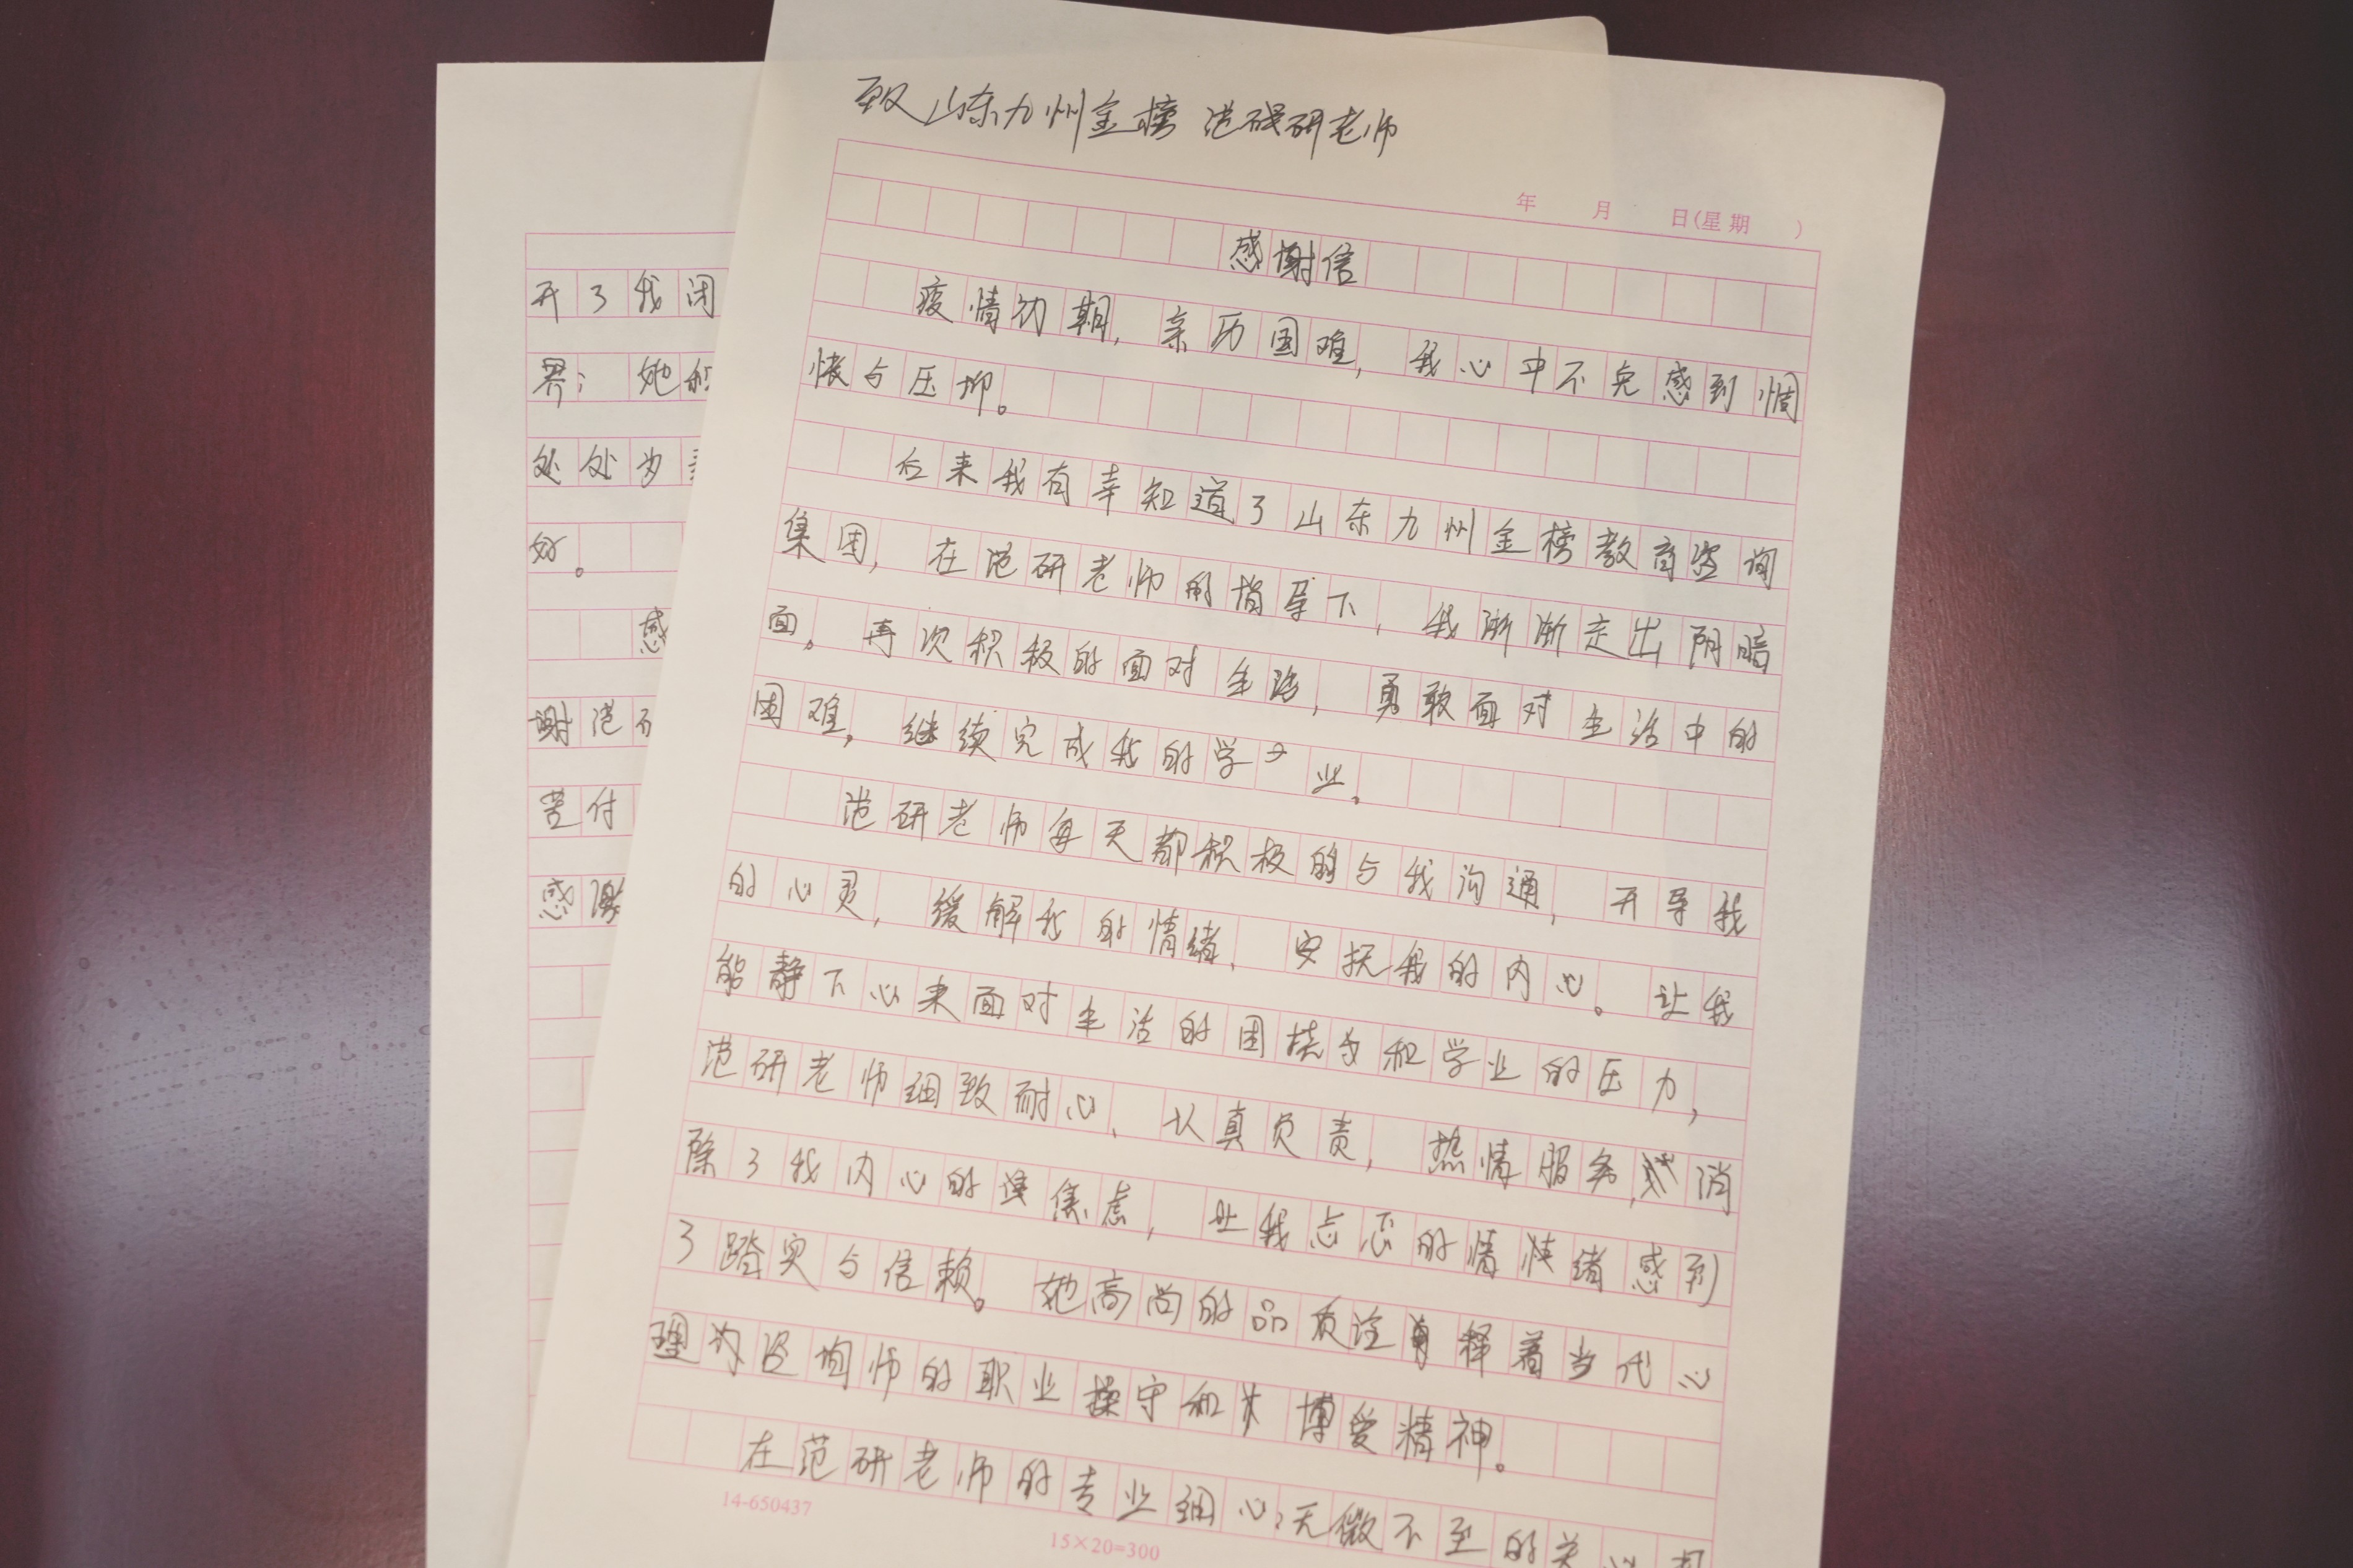 致山东九州金榜 范研老师
年 月 日(星期 )
感谢信
疫情初期，亲历困难，我心中不免感到惆
怅与压抑。
后来我有幸知道了山东九州金榜教育咨询
集团，在范研老师的指导下，我渐渐走出阴暗
面。再次积极的面对生活，勇敢面对生活中的
困难，继续完成我的学业。
范研老师每天都积极的与我沟通，开导我
的心灵，缓解我的情绪、安抚我的内心。让我
能静下心来面对生活的困扰和学业的压力，
范研老师细致耐心、认真负责，热情服务，消
除了我内心的焦虑，让我忐忑的情绪感到
了踏实与信赖。她高尚的品质诠释着当代心
理咨询师的职业操守和博爱精神。
在范研老师的专业细心，无微不至的关心
14-650437
15×20=300
开了我闭
界；她
处处为
好。
感
谢范研
苦付
感谢